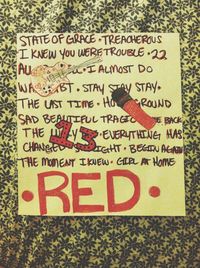 STATE OF GRACE • TREACHEROUS
I KNEW YOU WERE TROUBLE • 22
I ALMOST DO
STAY STAY STAY •
THE LAST TIME •
SAD BEAUTIFUL TRAGIC BACK
THE • EVERYTHING HAS
CHANGED • BEGIN AGAIN
THE MOMENT I KNEW • GIRL AT HOME
13
• RED •